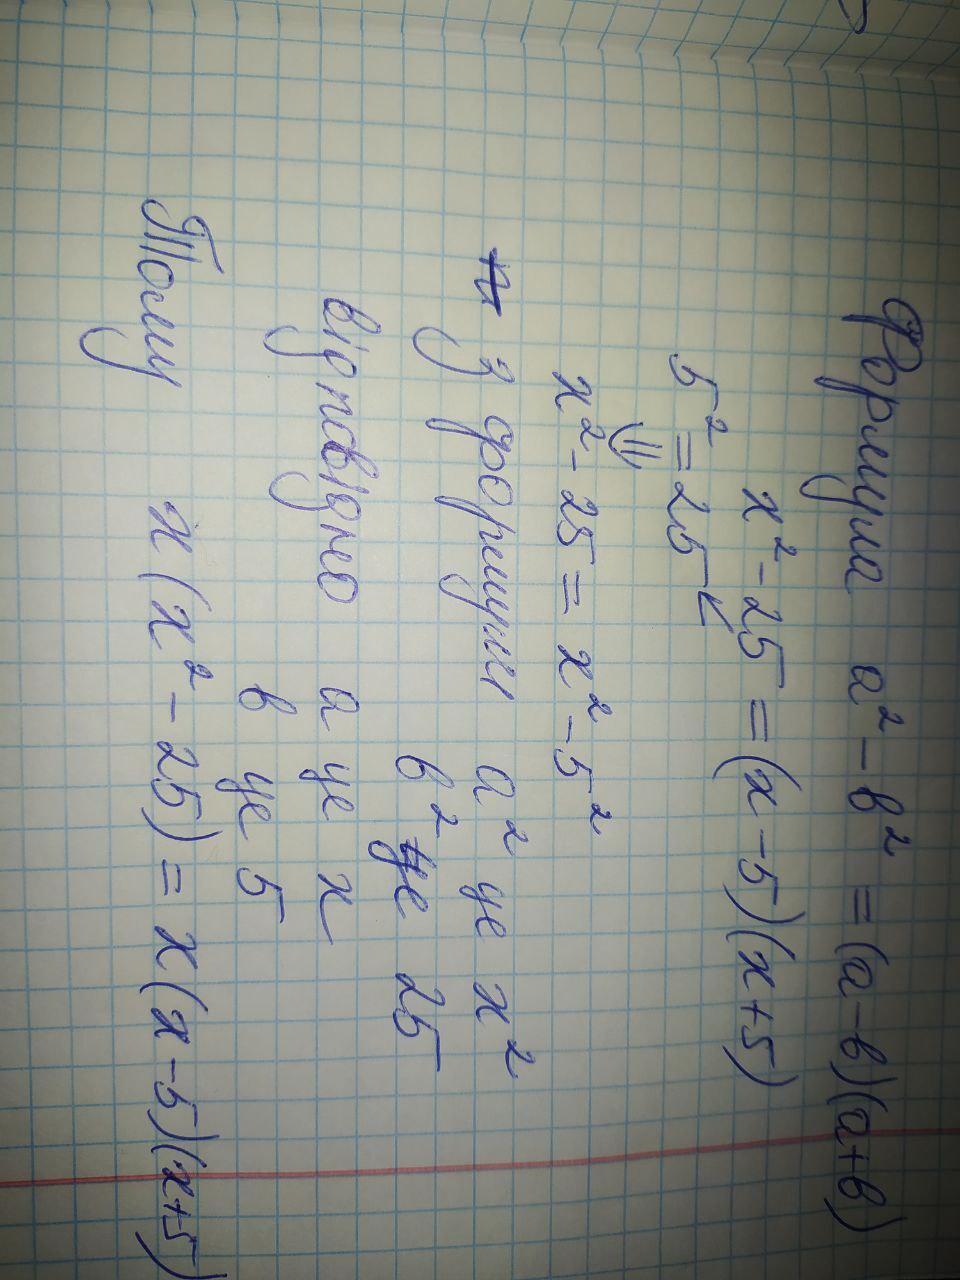 Формула a² - в² = (a-в)(a+в)
x² - 25 = (x - 5)(x + 5)
5² = 25
x² - 25 = x² - 5²
з формули a² це x²
в² це 25
відповідно a це x
в це 5
Тому x(x² - 25) = x(x - 5)(x+5)